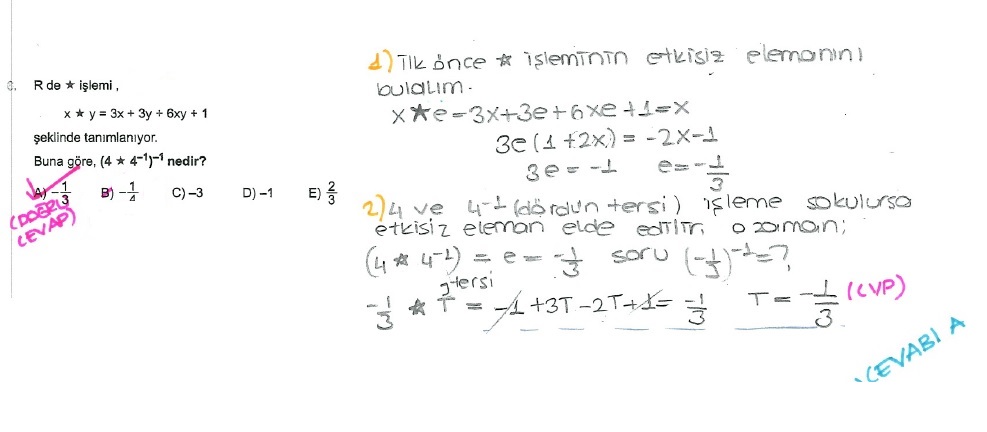 R de ★ işlemi ,
x ★ y = 3x + 3y + 6xy + 1
şeklinde tanımlanıyor.
Buna göre, (4 ★ 4⁻¹)⁻¹ nedir?
A) -1/3 B) -1/4 C) -3 D) -1 E) 2/3
(DOĞRU
CEVAP)
1) İlk önce ★ işleminin etkisiz elemanını
bulalım.
x★e=3x+3e+6xe+1=x
3e(1+2x)=-2x-1
3e=-1 e=-1/3
2) 4 ve 4⁻¹ (dördün tersi) işleme sokulursa
etkisiz eleman elde edilir, o zaman;
(4 ★ 4⁻¹) = e = -1/3 soru (-1/3)⁻¹=?
tersi
-1/3 ★ T = -1+3T-2T+1= -1/3 T = -1/3 (CVP)
CEVABI A